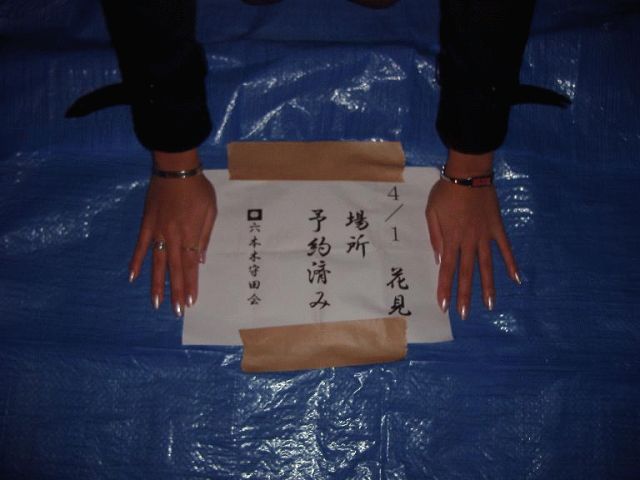 4/1 花見
場所
予約済み
六本木守田会